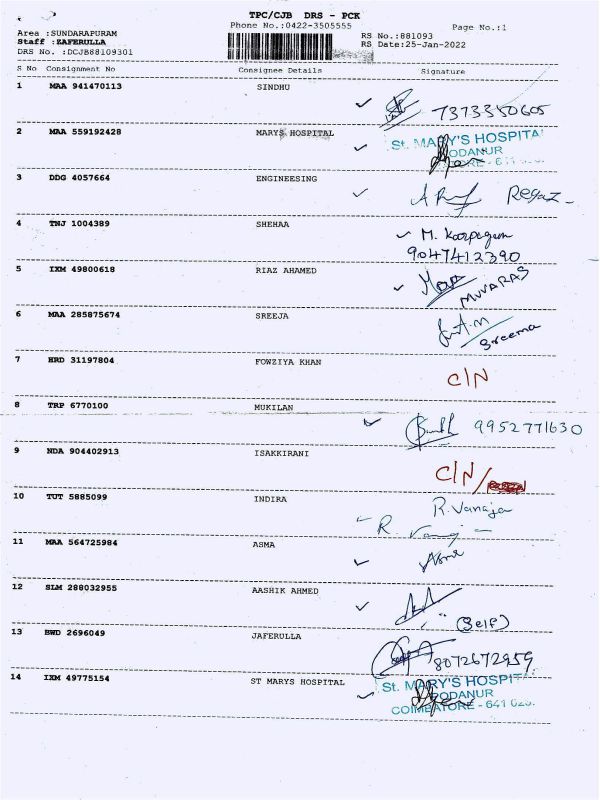 TPC/CJB DRS - PCK
Phone No.:0422-3505555 Page No.:1
Area :SUNDARAPURAM RS No.:881093
Staff :ZAFERULLA RS Date:25-Jan-2022
DRS No. :DCJB88109301
S No Consignment No Consignee Details Signature
1 MAA 941470113 SINDHU
7373350605
2 MAA 559192428 MARYS HOSPITAL
St. MARY'S HOSPITAL
PODANUR
3 DDG 4057664 ENGINEESING
Regaz
4 TNJ 1004389 SHEHAA M. Karpagam
9047412390
5 IXM 49800618 RIAZ AHAMED
6 MAA 285875674 SREEJA
Sreema
7 HRD 31197804 FOWZIYA KHAN
C/N
8 TRP 6770100 MUKILAN
9952771630
9 NDA 904402913 ISAKKIRANI
C/N
10 TUT 5885099 INDIRA R. Vanaja
R Vanaja
11 MAA 564725984 ASMA
Asma
12 SLM 288032955 AASHIK AHMED
(Self)
13 BWD 2696049 JAFERULLA
8072672959
14 IXM 49775154 ST MARYS HOSPITAL St. MARY'S HOSPITAL
PODANUR
COIMBATORE - 641 023.